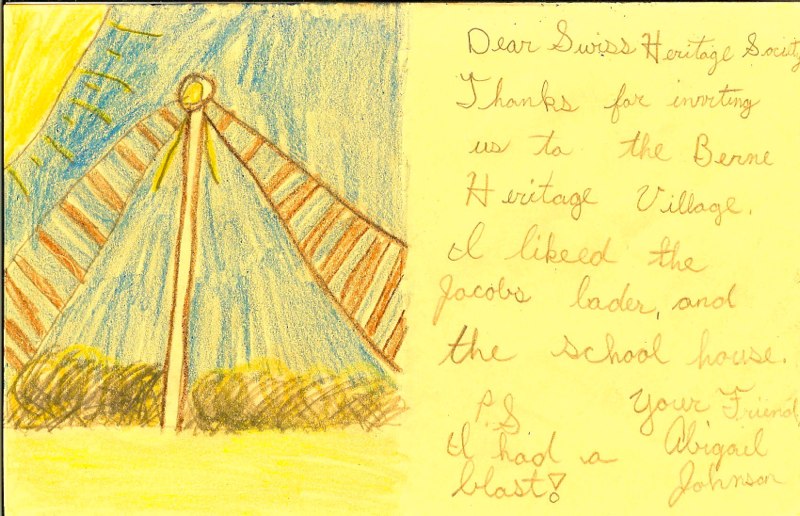 Dear Swiss Heritage Society
Thanks for inviting
us to the Berne
Heritage Village.
I likeed the
Jacobs lader, and
the school house.
Your Friend,
Abigail
Johnson
P.S
I had a
blast!